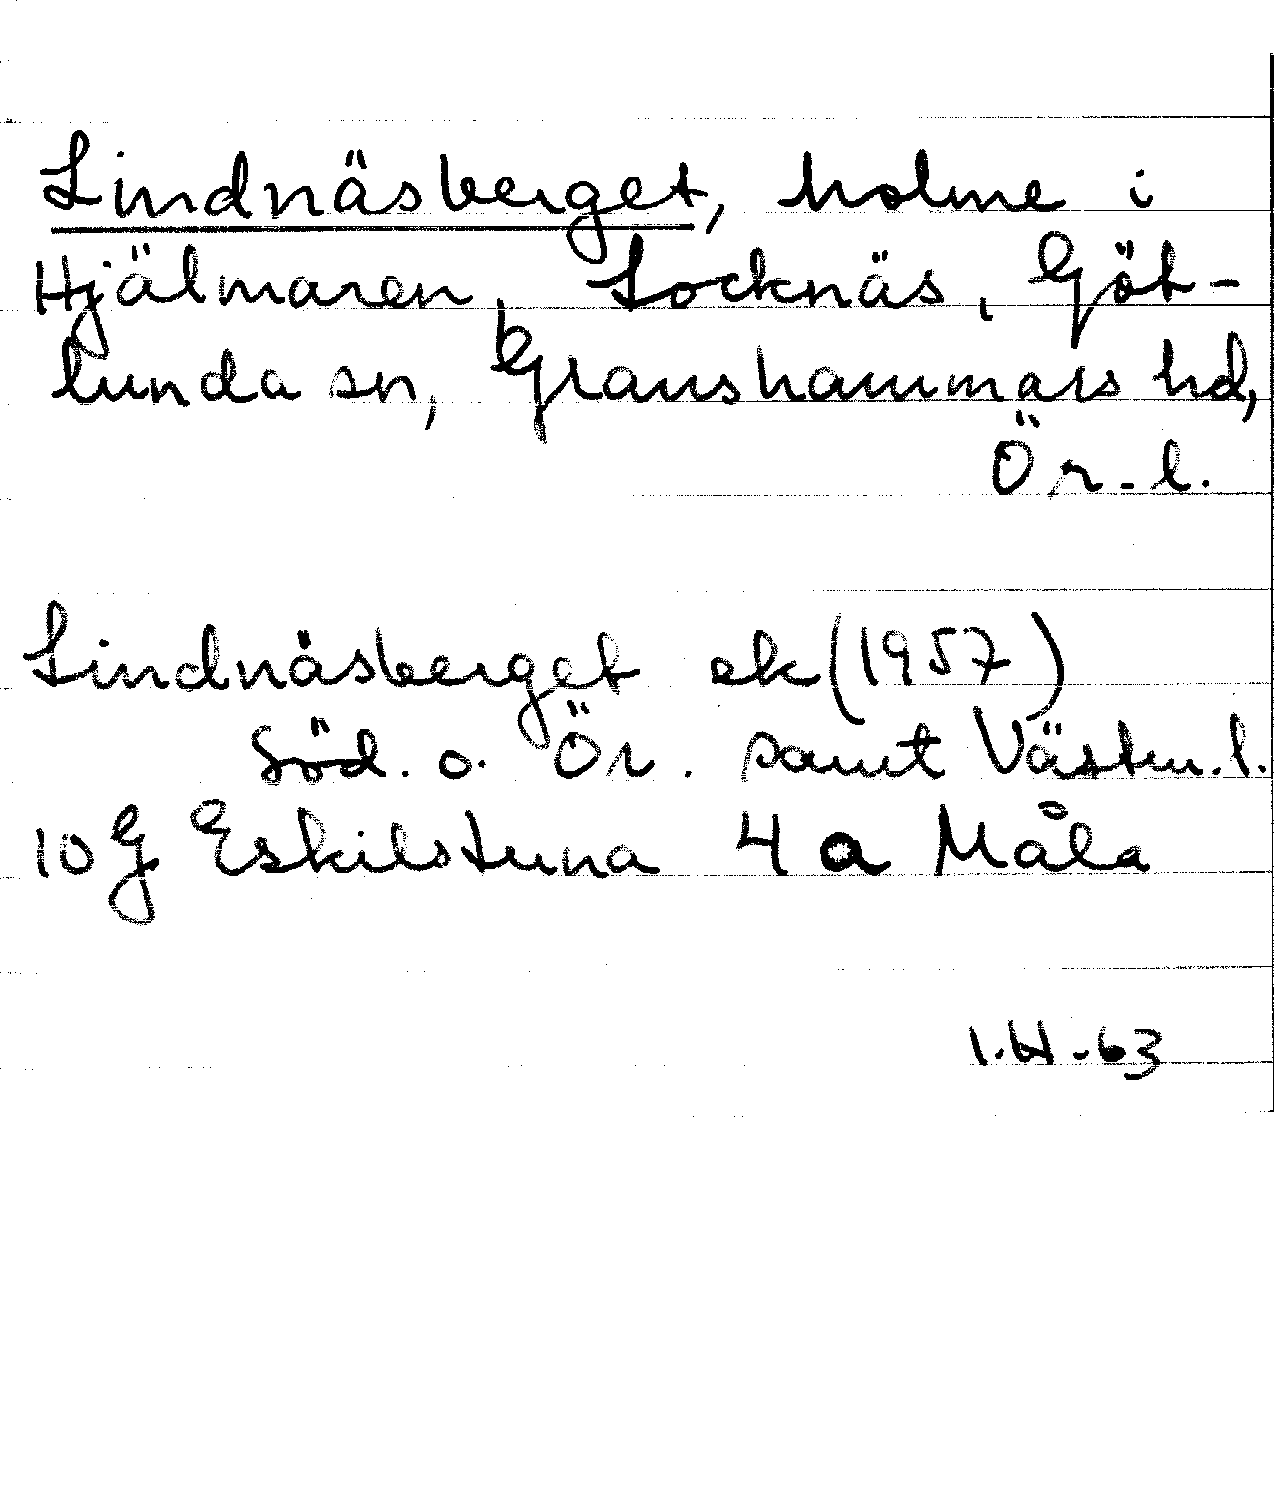 Lindnäsberget, holme i
Hjälmaren, Socknäs, Göt-
lunda sn, Granshammars hd,
Ör-l.
Lindnäsberget ek (1957)
Söd. o. Ör. samt Västm. l.
10g Eskilstuna 4 a Måla
I.H-63